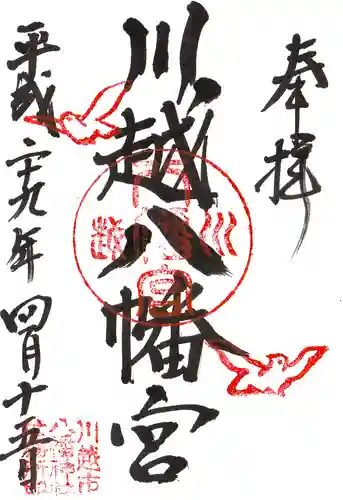 奉拝
川越八幡宮
平成二十九年四月十五日
川越
八幡宮
川越市